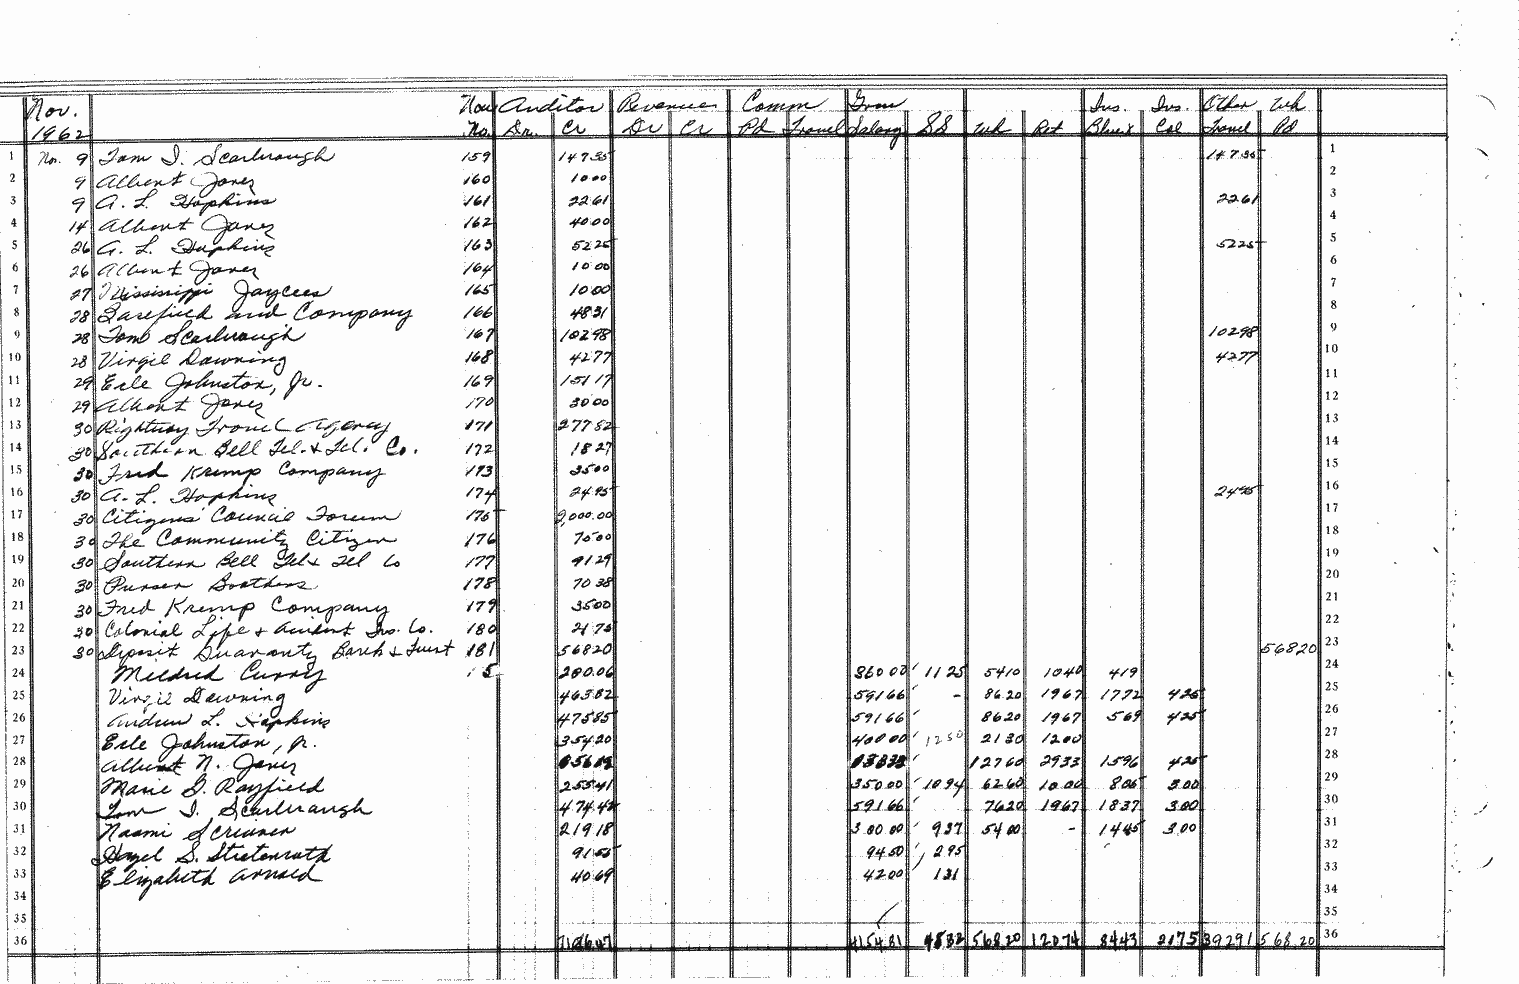 Nov. Nov Auditor Revenue Comm Gross Ins. Ins. Other Wh
1962 No. Dr. Cr Dr Cr Pd Travel Salary SS Wh Ret Blue X Col Travel Pd
1 Nov. 9 Tom I. Scarbrough 159 147.35 147.35 1
2 9 Albert Jones 160 10.00 2
3 9 A. L. Hopkins 161 22.61 22.61 3
4 14 Albert Jones 162 40.00 4
5 26 A. L. Hopkins 163 52.25 52.25 5
6 26 Albert Jones 164 10.00 6
7 27 Mississippi Jaycees 165 10.00 7
8 28 Barefield and Company 166 48.31 8
9 28 Tom Scarbrough 167 102.98 102.98 9
10 28 Virgil Downing 168 42.77 42.77 10
11 29 Erle Johnston, Jr. 169 151.17 11
12 29 Albert Jones 170 30.00 12
13 30 Rightway Travel Agency 171 277.52 13
14 30 Southern Bell Tel. & Tel. Co. 172 18.27 14
15 30 Fred Kremp Company 173 35.00 15
16 30 A. L. Hopkins 174 24.95 24.95 16
17 30 Citizens' Council Forum 175 2,000.00 17
18 30 The Community Citizen 176 75.00 18
19 30 Southern Bell Tel & Tel Co 177 91.29 19
20 30 Purser Brothers 178 70.38 20
21 30 Fred Kremp Company 179 35.00 21
22 30 Colonial Life & Accident Ins. Co. 180 21.75 22
23 30 Deposit Guaranty Bank & Trust 181 568.20 568.20 23
24 Mildred Curry 280.06 360.00 11.25 54.10 10.40 4.19 24
25 Virgil Downing 463.82 591.66 - 86.20 19.67 17.72 4.25 25
26 Andrew L. Hopkins 475.85 591.66 86.20 19.67 5.69 4.25 26
27 Erle Johnston, Jr. 354.20 400.00 12.50 21.30 12.00 27
28 Albert N. Jones 127.60 29.33 15.96 4.25 28
29 Marie G. Rayfield 255.41 350.00 10.94 62.60 10.00 8.05 3.00 29
30 Tom I. Scarbrough 474.42 591.66 76.20 19.67 18.37 3.00 30
31 Naomi Scrivner 219.18 300.00 9.37 54.00 - 14.45 3.00 31
32 Hazel S. 91.55 94.50 2.95 32
33 Elizabeth Arnold 40.69 42.00 1.31 33
34 34
35 35
36 4154.81 48.32 568.20 120.74 84.43 21.75 392.91 568.20 36